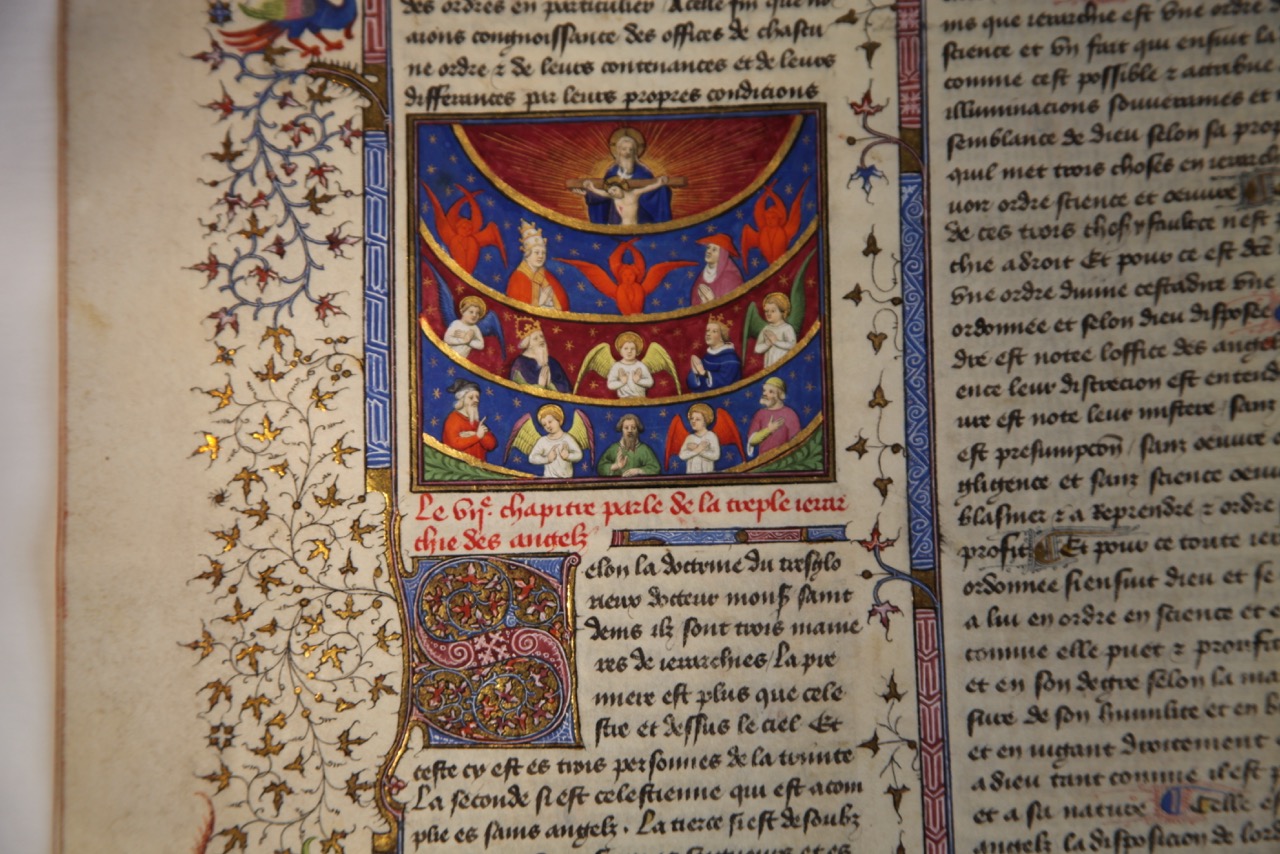 des ordres en particulier / A celle fin que no
aions congnoissance des offices de chascu
ne ordre ⁊ de leurs contenances et de leurs
differances par leurs propres conditions
Le vij.e chapitre parle de la treple ierar
chie des angelz
Selon la doctrine du tresglo
rieux docteur mons saint
denis ilz sont trois manie
res de ierarchies / La pre
miere est plus que cele
stre et dessus le ciel Et
ceste cy est es trois personnes de la trinite
La seconde si est celestienne qui est acom
plie es sains angelz . La tierce si est desoubz
ms que ierarchie est vne ordre
science et vn fait qui ensuit la
comme cest possible ⁊
illuminacions souueraines et
semblance de dieu selon sa
quil met trois choses en
uoir ordre science et oeuure
de ces trois choses y faulte nest
chie a droit Et pour ce est
vne ordre diuine cestadire vne
ordonnee et selon dieu disposee
dre est notee loffice des angelz
ence leur discrecion est
ure est note leur mistere / sanz
est presumpcon / sanz oeuure
gligence et sanz science
blasmer ⁊ a reprendre ⁊ ordre
profit Et pour ce toute
ordonnee si ensuit dieu et se
a lui en ordre en science et
comme elle puet ⁊
et en son degre selon la
sure de son humilite et en
et en uigant droitement
a dieu tant comme il est
et a sa nature Celle
angelz la disposicion de